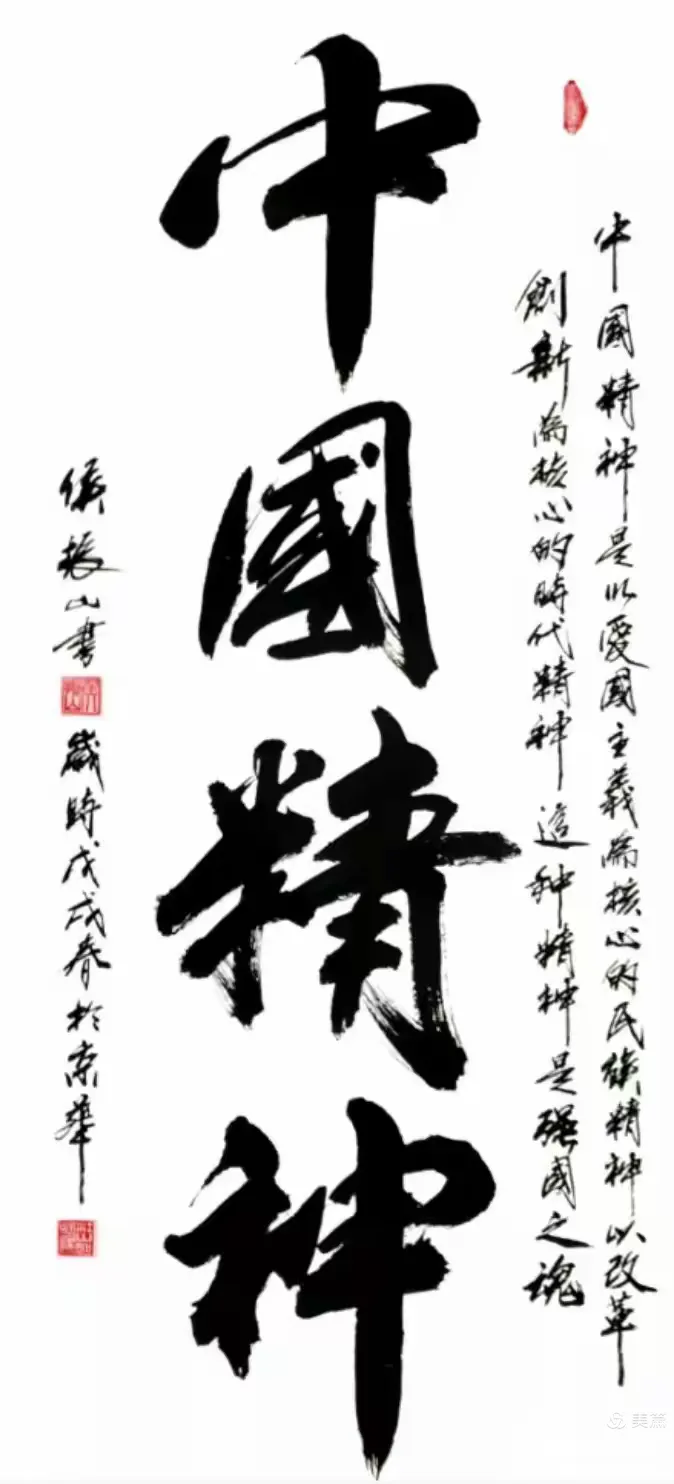 中國精神是以愛國主義為核心的民族精神以改革
創新為核心的時代精神這种精神是强國之魂
中國精神
儀振山書
歲時戊戌春於京華
美篇